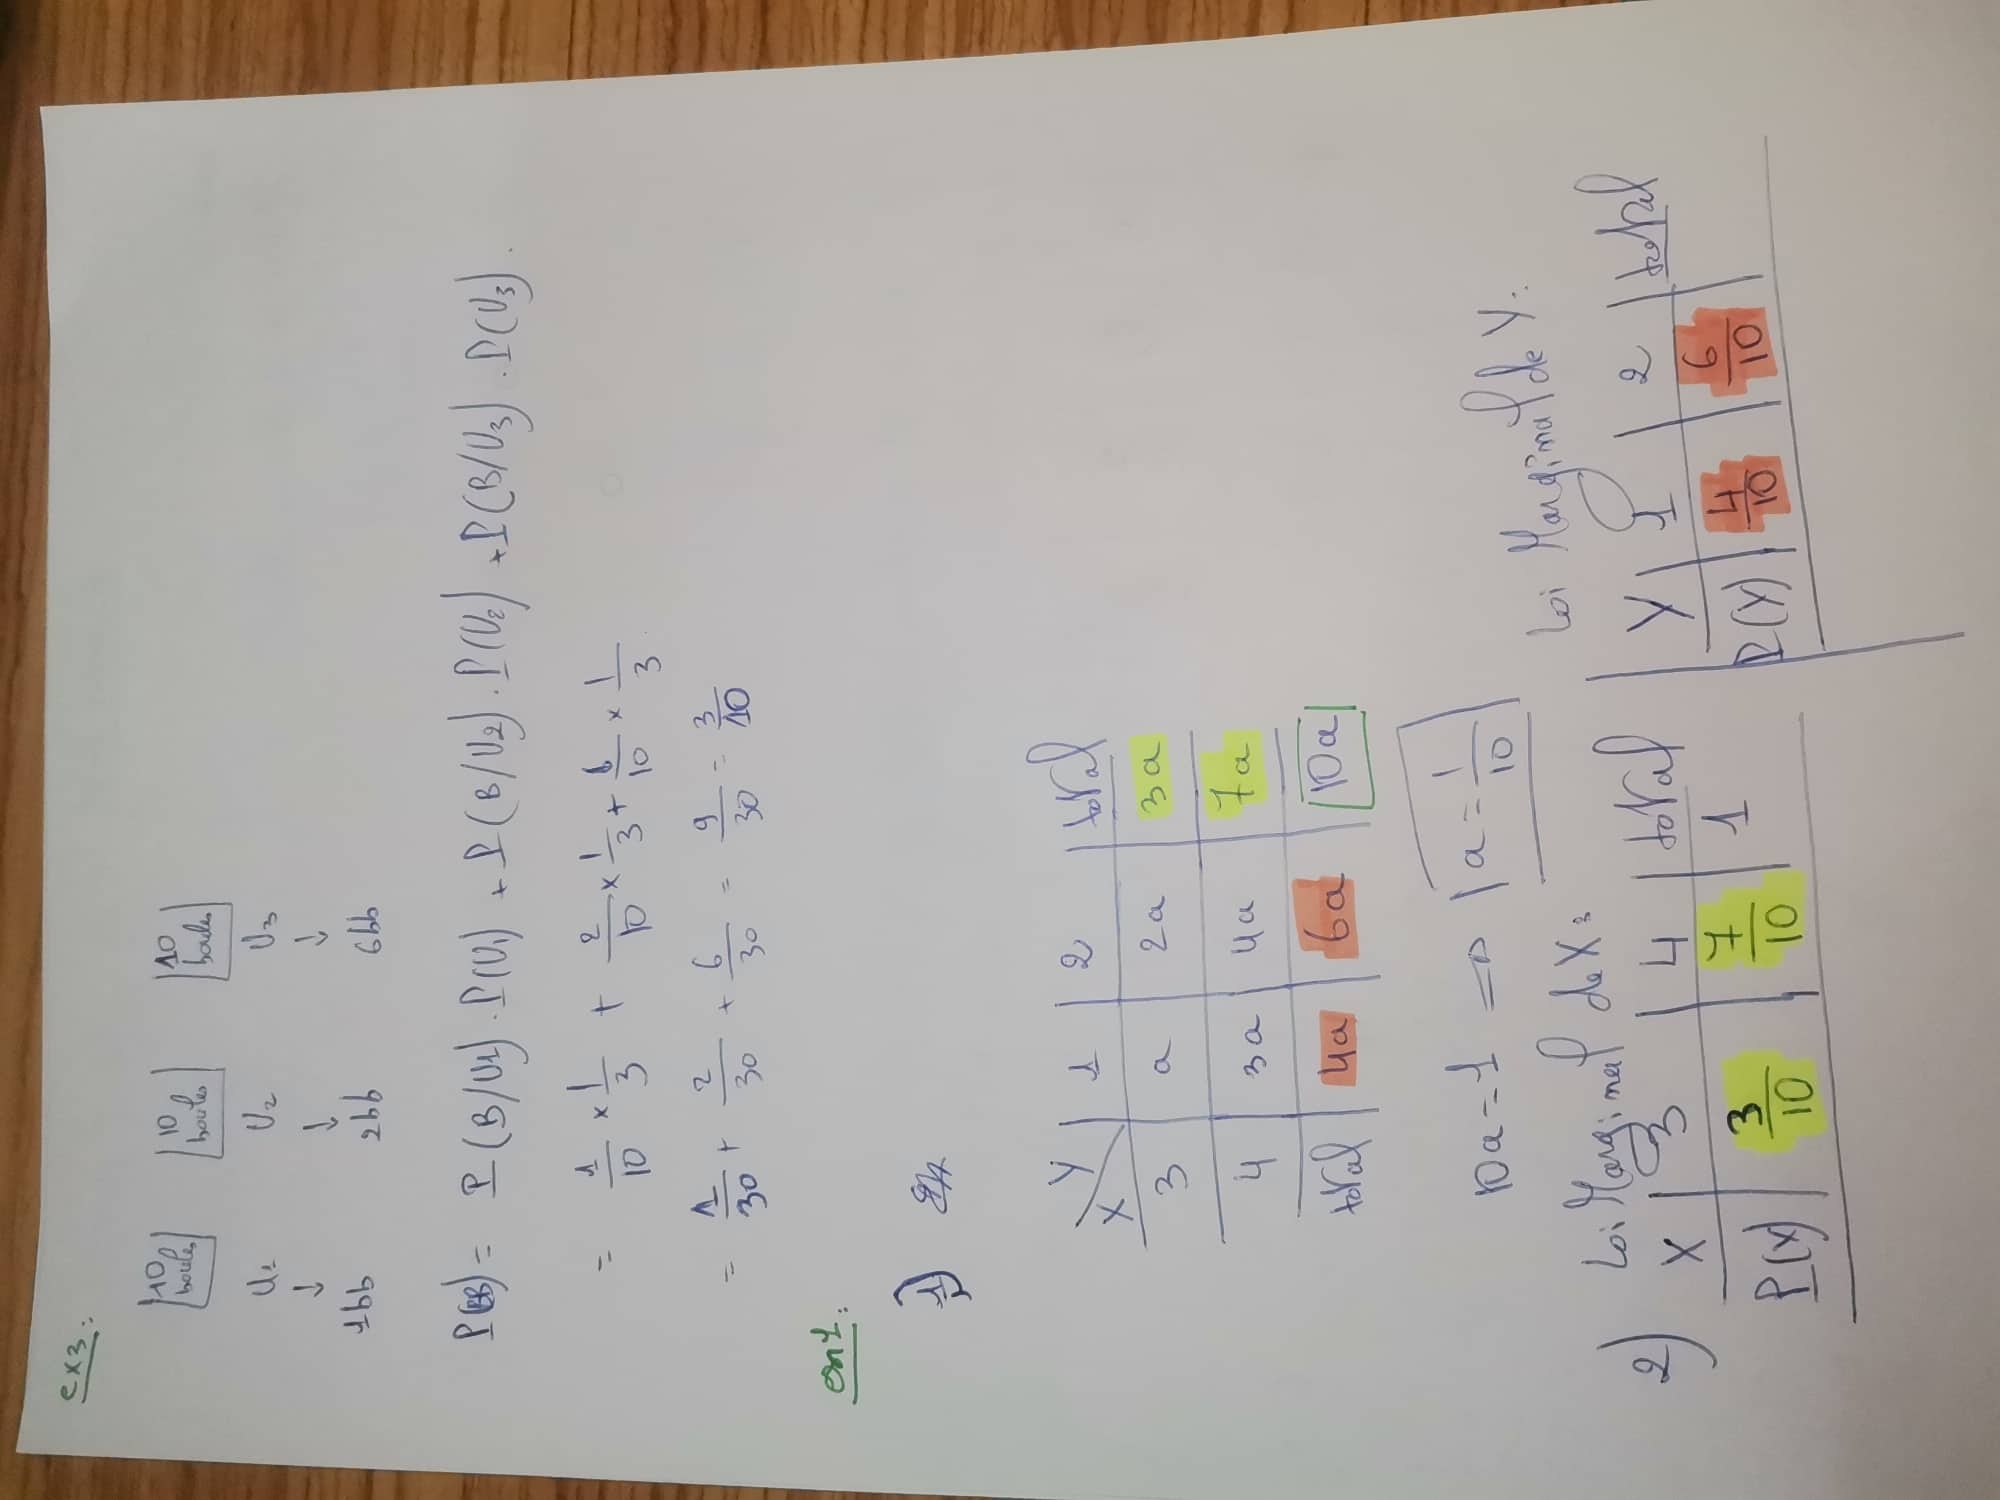 ex3:
10 boules 10 boules 10 boules
U1 U2 U3
↓ ↓ ↓
1bb 2bb 6bb
P(B) = P(B/U1).P(U1) + P(B/U2).P(U2) + P(B/U3).P(U3).
= 1/10 × 1/3 + 2/10 × 1/3 + 6/10 × 1/3.
= 1/30 + 2/30 + 6/30 = 9/30 = 3/10
1)
X Y 1 2 total
3 a 2a 3a
4 3a 4a 7a
total 4a 6a 10a
10a = 1 => a = 1/10
2) Loi Marginal de X: Loi Marginal de Y:
X 3 4 total Y 1 2 total
P(X) 3/10 7/10 1 P(Y) 4/10 6/10